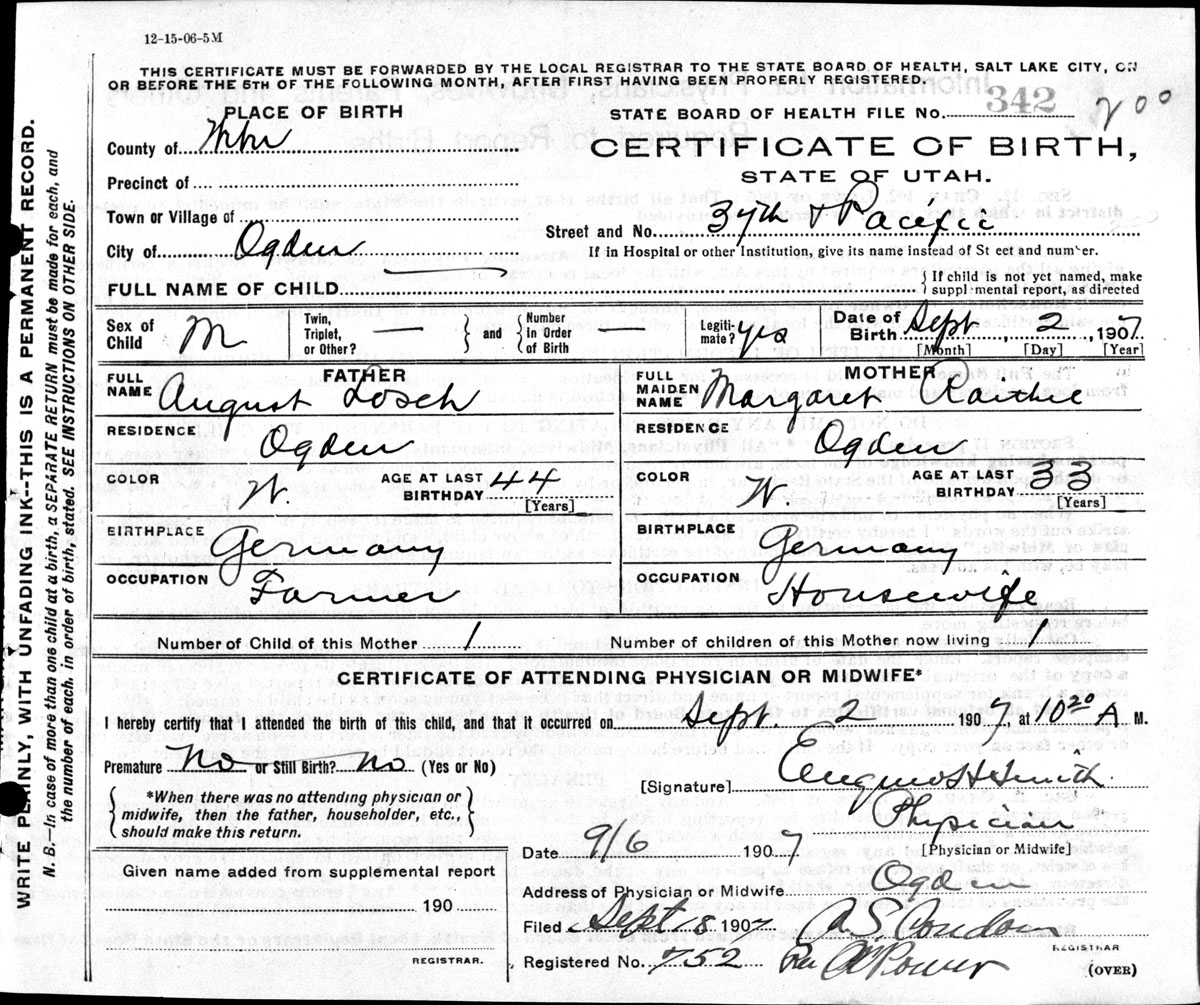 12-15-06-5M
THIS CERTIFICATE MUST BE FORWARDED BY THE LOCAL REGISTRAR TO THE STATE BOARD OF HEALTH, SALT LAKE CITY, ON
OR BEFORE THE 5TH OF THE FOLLOWING MONTH, AFTER FIRST HAVING BEEN PROPERLY REGISTERED.
WRITE PLAINLY, WITH UNFADING INK--THIS IS A PERMANENT RECORD.
N. B.--In case of more than one child at a birth, a SEPARATE RETURN must be made for each, and
the number of each, in order of birth, stated. SEE INSTRUCTIONS ON OTHER SIDE.
PLACE OF BIRTH
STATE BOARD OF HEALTH FILE No. 342 200
County of
CERTIFICATE OF BIRTH,
STATE OF UTAH.
Precinct of
Town or Village of
Street and No. 37th & Pacific
City of Ogden
If in Hospital or other Institution, give its name instead of Street and number.
FULL NAME OF CHILD
If child is not yet named, make
supplemental report, as directed
Sex of Child M
Twin, Triplet, or Other? — and Number in Order of Birth
Legitimate? yes
Date of Birth Sept 2, 1907
[Month] [Day] [Year]
FATHER
FULL NAME August Losch
RESIDENCE Ogden
COLOR W. AGE AT LAST BIRTHDAY 44 [Years]
BIRTHPLACE Germany
OCCUPATION Farmer
MOTHER
FULL MAIDEN NAME Margareth
RESIDENCE Ogden
COLOR W. AGE AT LAST BIRTHDAY 33 [Years]
BIRTHPLACE Germany
OCCUPATION Housewife
Number of Child of this Mother 1
Number of children of this Mother now living 1
CERTIFICATE OF ATTENDING PHYSICIAN OR MIDWIFE*
I hereby certify that I attended the birth of this child, and that it occurred on Sept. 2 1907, at 10 20 A M.
Premature No or Still Birth? No (Yes or No)
[Signature] H Smith
*When there was no attending physician or
midwife, then the father, householder, etc.,
should make this return.
Physician
[Physician or Midwife]
Date 9/6 1907
Given name added from supplemental report
190
REGISTRAR.
Address of Physician or Midwife Ogden
Filed Sept 18 1907 A. S. Condon
REGISTRAR
Registered No. 752 Per Power
(OVER)